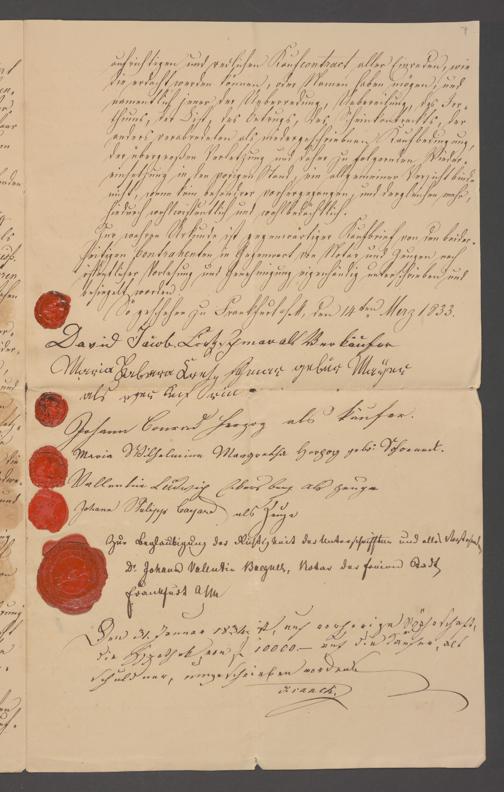 aufrichtigen und redlichen Kaufcontract aller Einreden, wie
die erdacht werden können, oder Namen haben mögen, und
namentlich jener der Ueberredung, Uebereilung, des Irr-
thums, der List, des Betrugs, des Scheincontracts, der
anders verabredeten als niedergeschriebenen Kaufbedingung,
der übergroßen Verletzung und daher zu folgernden Wieder-
einsetzung in den vorigen Stand, ein allgemeiner Verzicht binde
nicht, wenn kein besonderer vorhergegangen, und dergleichen mehr,
hiedurch wohlwissentlich und wohlbedächtlich.
Zur wahren Urkunde ist gegenwärtiger Kaufbrief von den beider-
seitigen Contrahenten in Gegenwart des Notars und Zeugen nach
öffentlicher Vorlesung und Genehmigung eigenhändig unterschrieben und
besiegelt worden.
So geschehen zu Frankfurt a/M, den 14ten Merz 1833.
David Jacob als Verkäufer
Maria Barbara gebür Mayer
als
Johann Conrad Herzog als Käufer.
Maria Wilhelmina Margaretha Herzog geb:
Vallentin Ludwig als Zeuge
Johann Philipp als Zeuge
Zur Beglaubigung der Richtigkeit der Unterschriften und alles
Dr. Johann Valentin Notar der freien Stadt
Frankfurt a/M
Den 31. Januar 1834 ist, nach vorheriger
die Hypothek von f 10000.– auf die Käufer, als
Schuldner, umgeschrieben worden